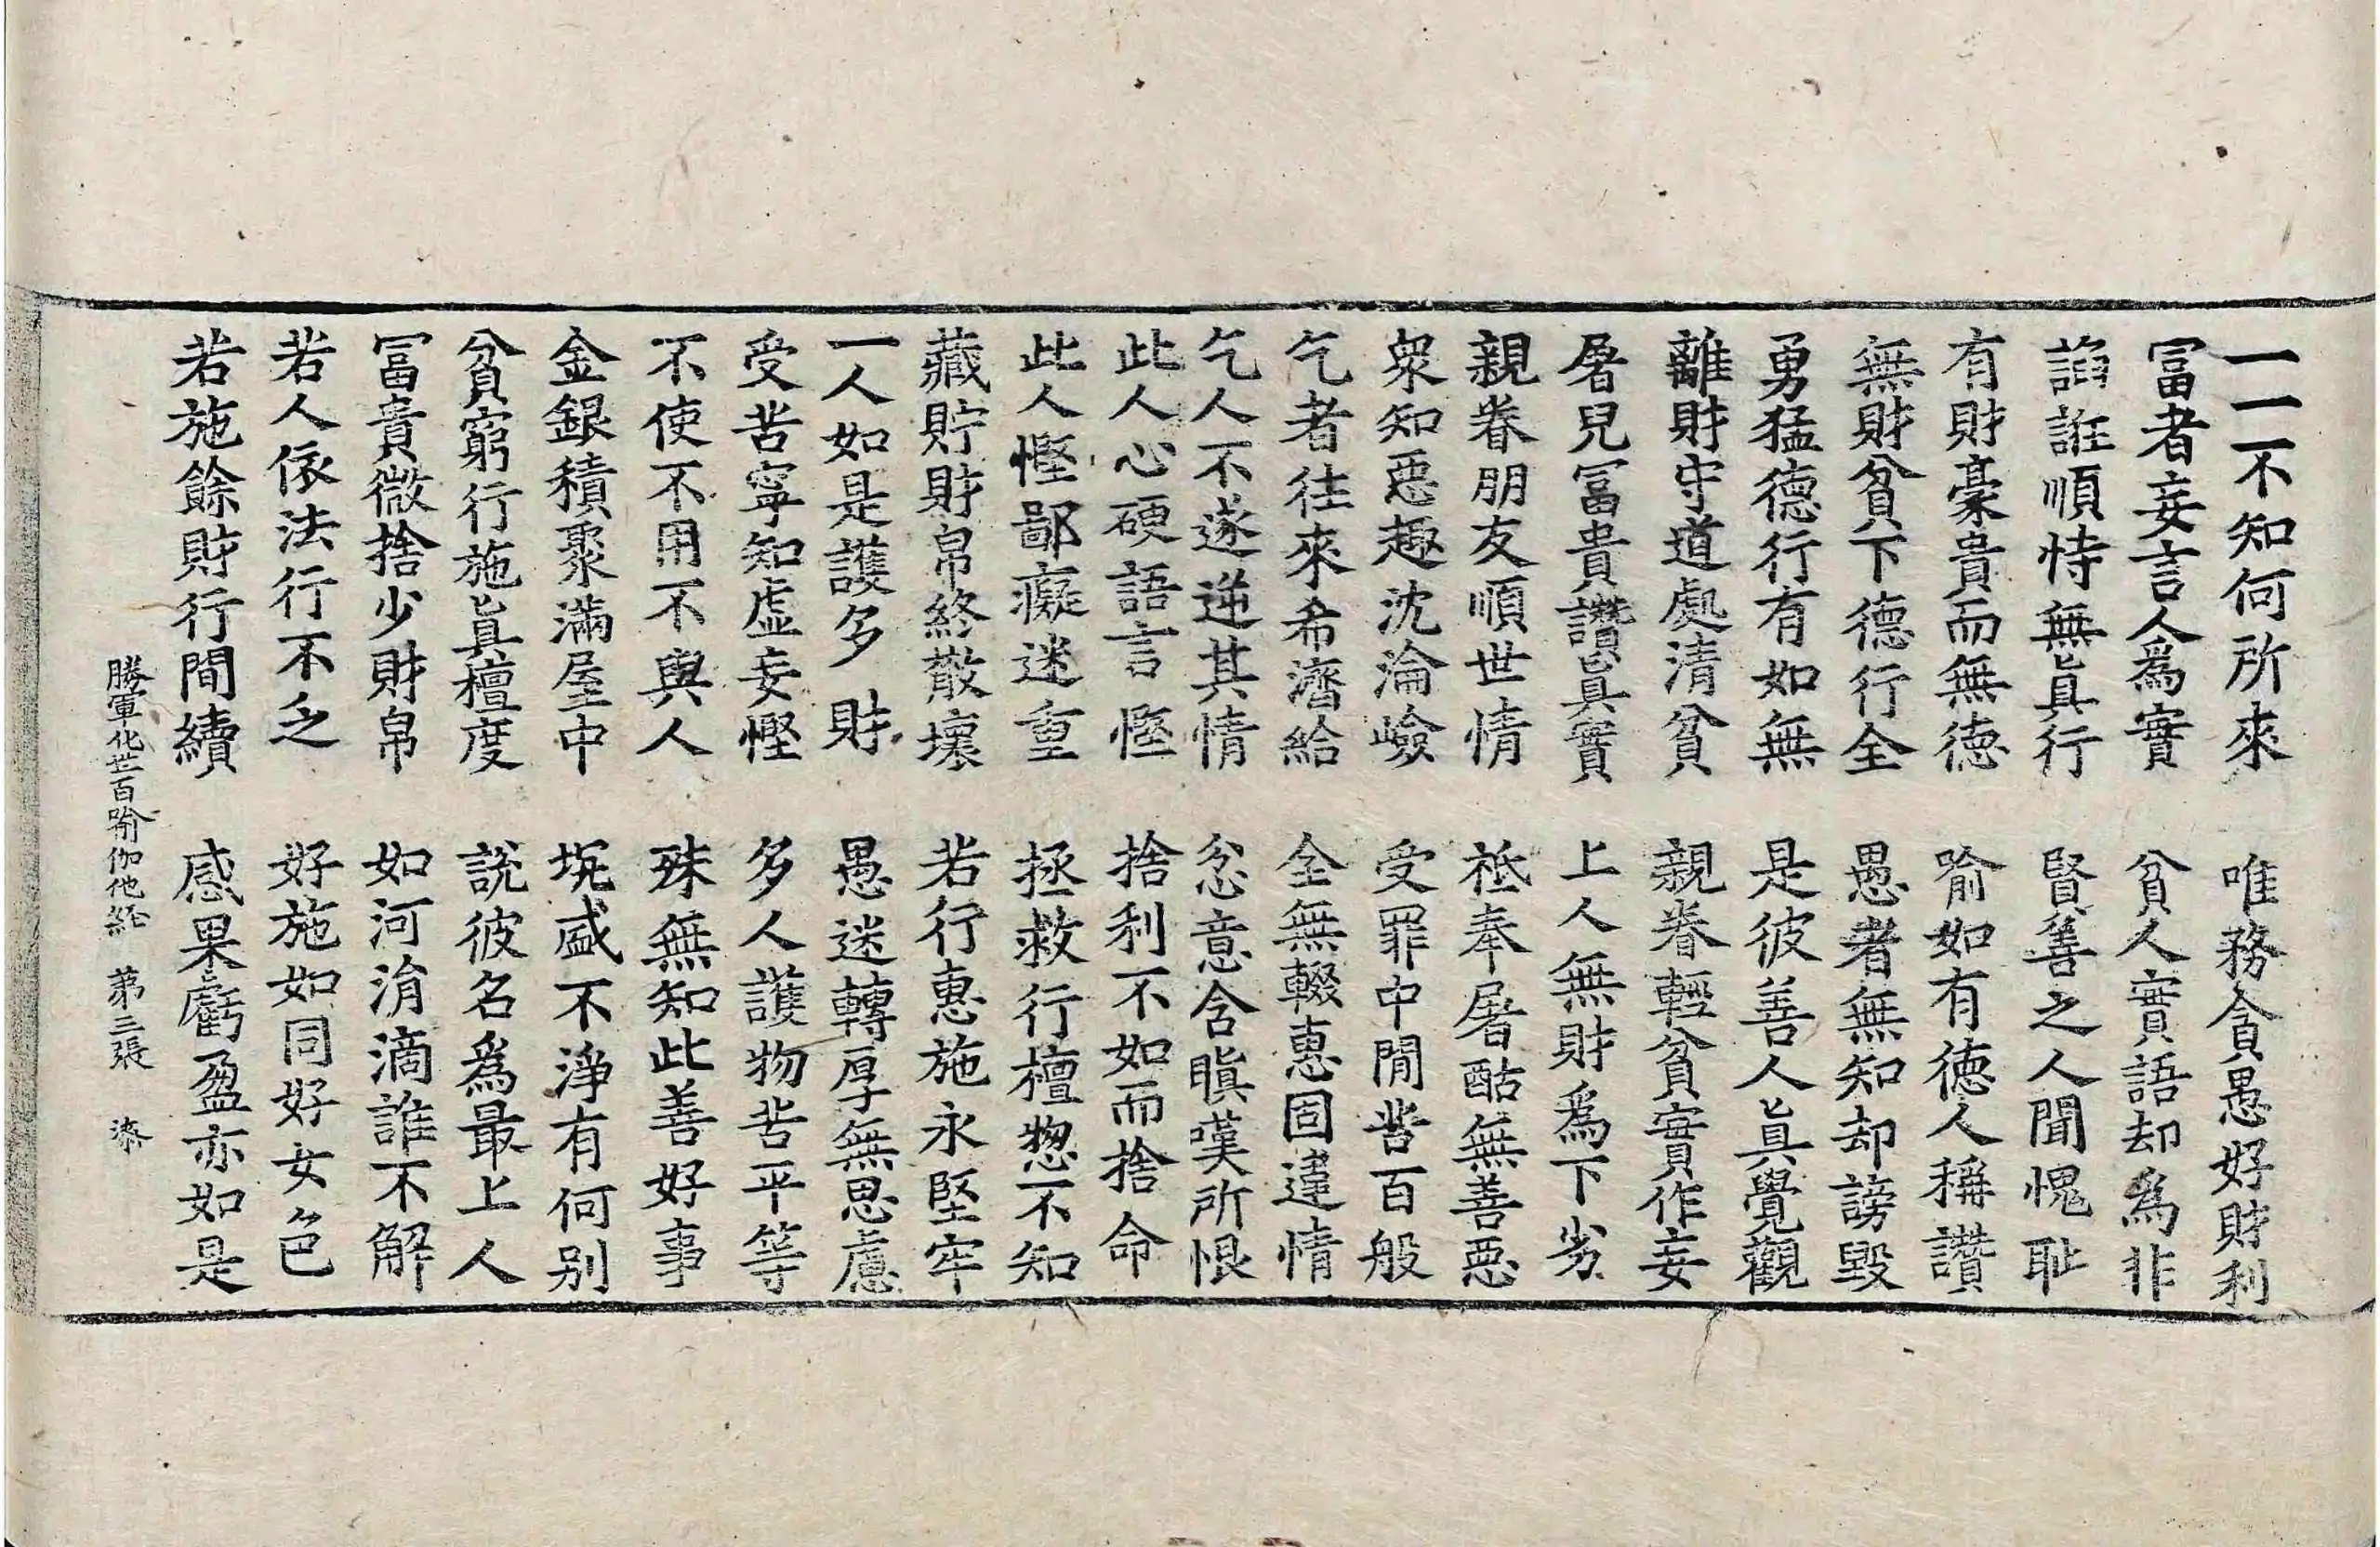 一一不知何所來　唯務貪愚好財利
冨者妄言人爲實　貧人實語却爲非
諂誑順恃無眞行　賢善之人聞愧耻
有財豪貴而無德　喻如有德人稱讚
無財貧下德行全　愚者無知却謗毀
勇猛德行有如無　是彼善人眞覺觀
離財守道處清貧　親眷輕貧實作妄
屠兒冨貴讚眞實　上人無財爲下劣
親眷朋友順世情　祗奉屠酤無善惡
衆知惡趣沈淪嶮　受罪中間苦百般
乞者往來希濟給　全無輟惠固違情
乞人不遂逆其情　忿意含瞋嘆所恨
此人心硬語言慳　捨利不如而捨命
此人慳鄙癡迷重　拯救行檀惣不知
藏貯財帛終散壞　若行惠施永堅牢
一人如是護多財　愚迷轉厚無思慮
受苦寧知虛妄慳　多人護物苦平等
不使不用不與人　殊無知此善好事
金銀積聚滿屋中　坑盛不淨有何別
貧窮行施眞檀度　說彼名爲最上人
冨貴微捨少財帛　如河涓滴誰不解
若人依法行不乏　好施如同好女色
若施餘財行間續　感果虧盈亦如是
勝軍化世百喻伽他經　第三張　漆